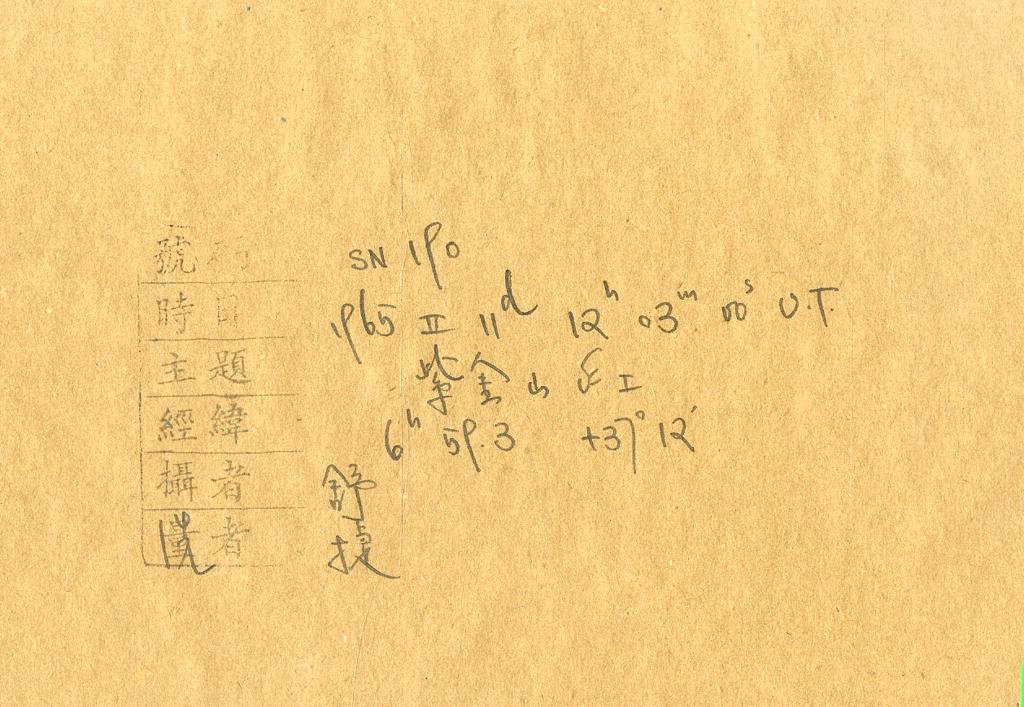 號 SN 190
時日 1965 II 11d 12h 03m 00s U.T.
主題 紫金山 I
經緯 6h 59.3 +37° 12'
攝者 舒
者